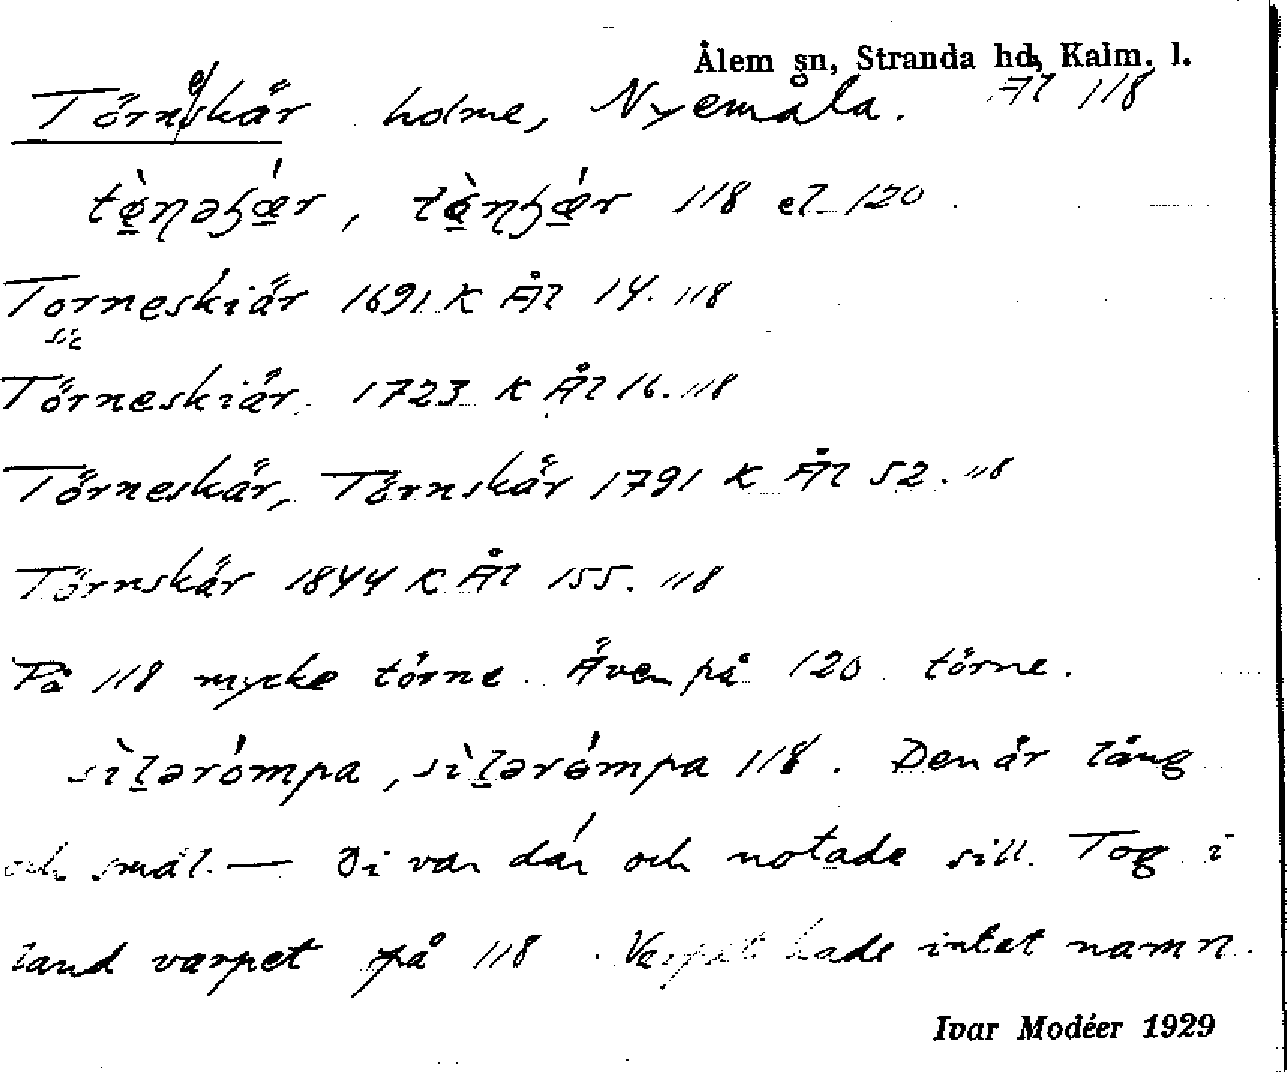 Ålem sn, Stranda hd, Kalm. l.
Törneskär holme, Nyemåla. Ål 118
tǿ̀ŋəʃǽr, tǿ̀ŋʃǽr 118 el 120
Torneskiär 1691 K Ål 14. 118
sic
Törneskiär 1723 K Ål 16. 118
Törneskär, Törnskär 1791 K Ål 52. 118
Törnskär 1844 K Ål 155. 118
På 118 mycke törne. Även på 120 törne.
sìlərómpa, sìlərómpa 118. Den är lång
och smal. — Di var där och notade sill. Tog i
land varpet på 118. Varpet hade intet namn.
Ivar Modéer 1929